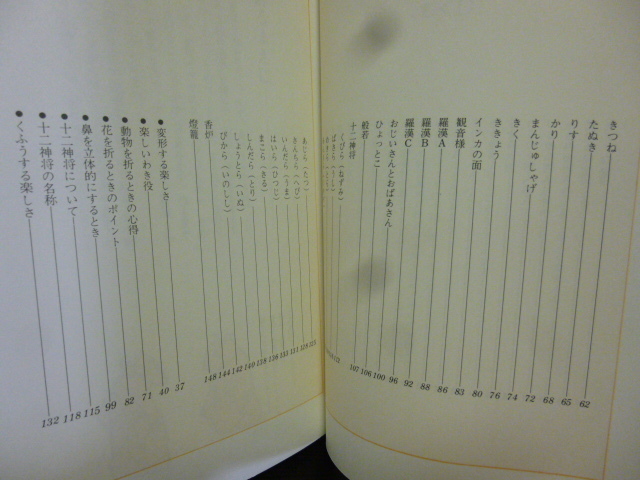 きつね 62
たぬき 65
りす 68
かり 72
まんじゅしゃげ 74
きく 76
ききょう 80
インカの面 83
観音様 86
羅漢A 88
羅漢B 92
羅漢C 96
おじいさんとおばあさん 100
ひょっとこ 106
般若 107
十二神将
くびら（ねずみ）
ばさら（うし）
あじら（たつ）
さんちら（へび） 128
いんだら（うま） 131
はいら（ひつじ） 133
まこら（さる）
しんだら（とり） 138
しょうとら（いぬ） 140
びから（いのしし） 142
香炉 144
燈籠 148
●変形する楽しさ 37
●楽しいわき役 40
●動物を折るときの心得 71
●花を折るときのポイント 82
●鼻を立体的にするとき 99
●十二神将について 115
●十二神将の名称 118
●くふうする楽しさ 132